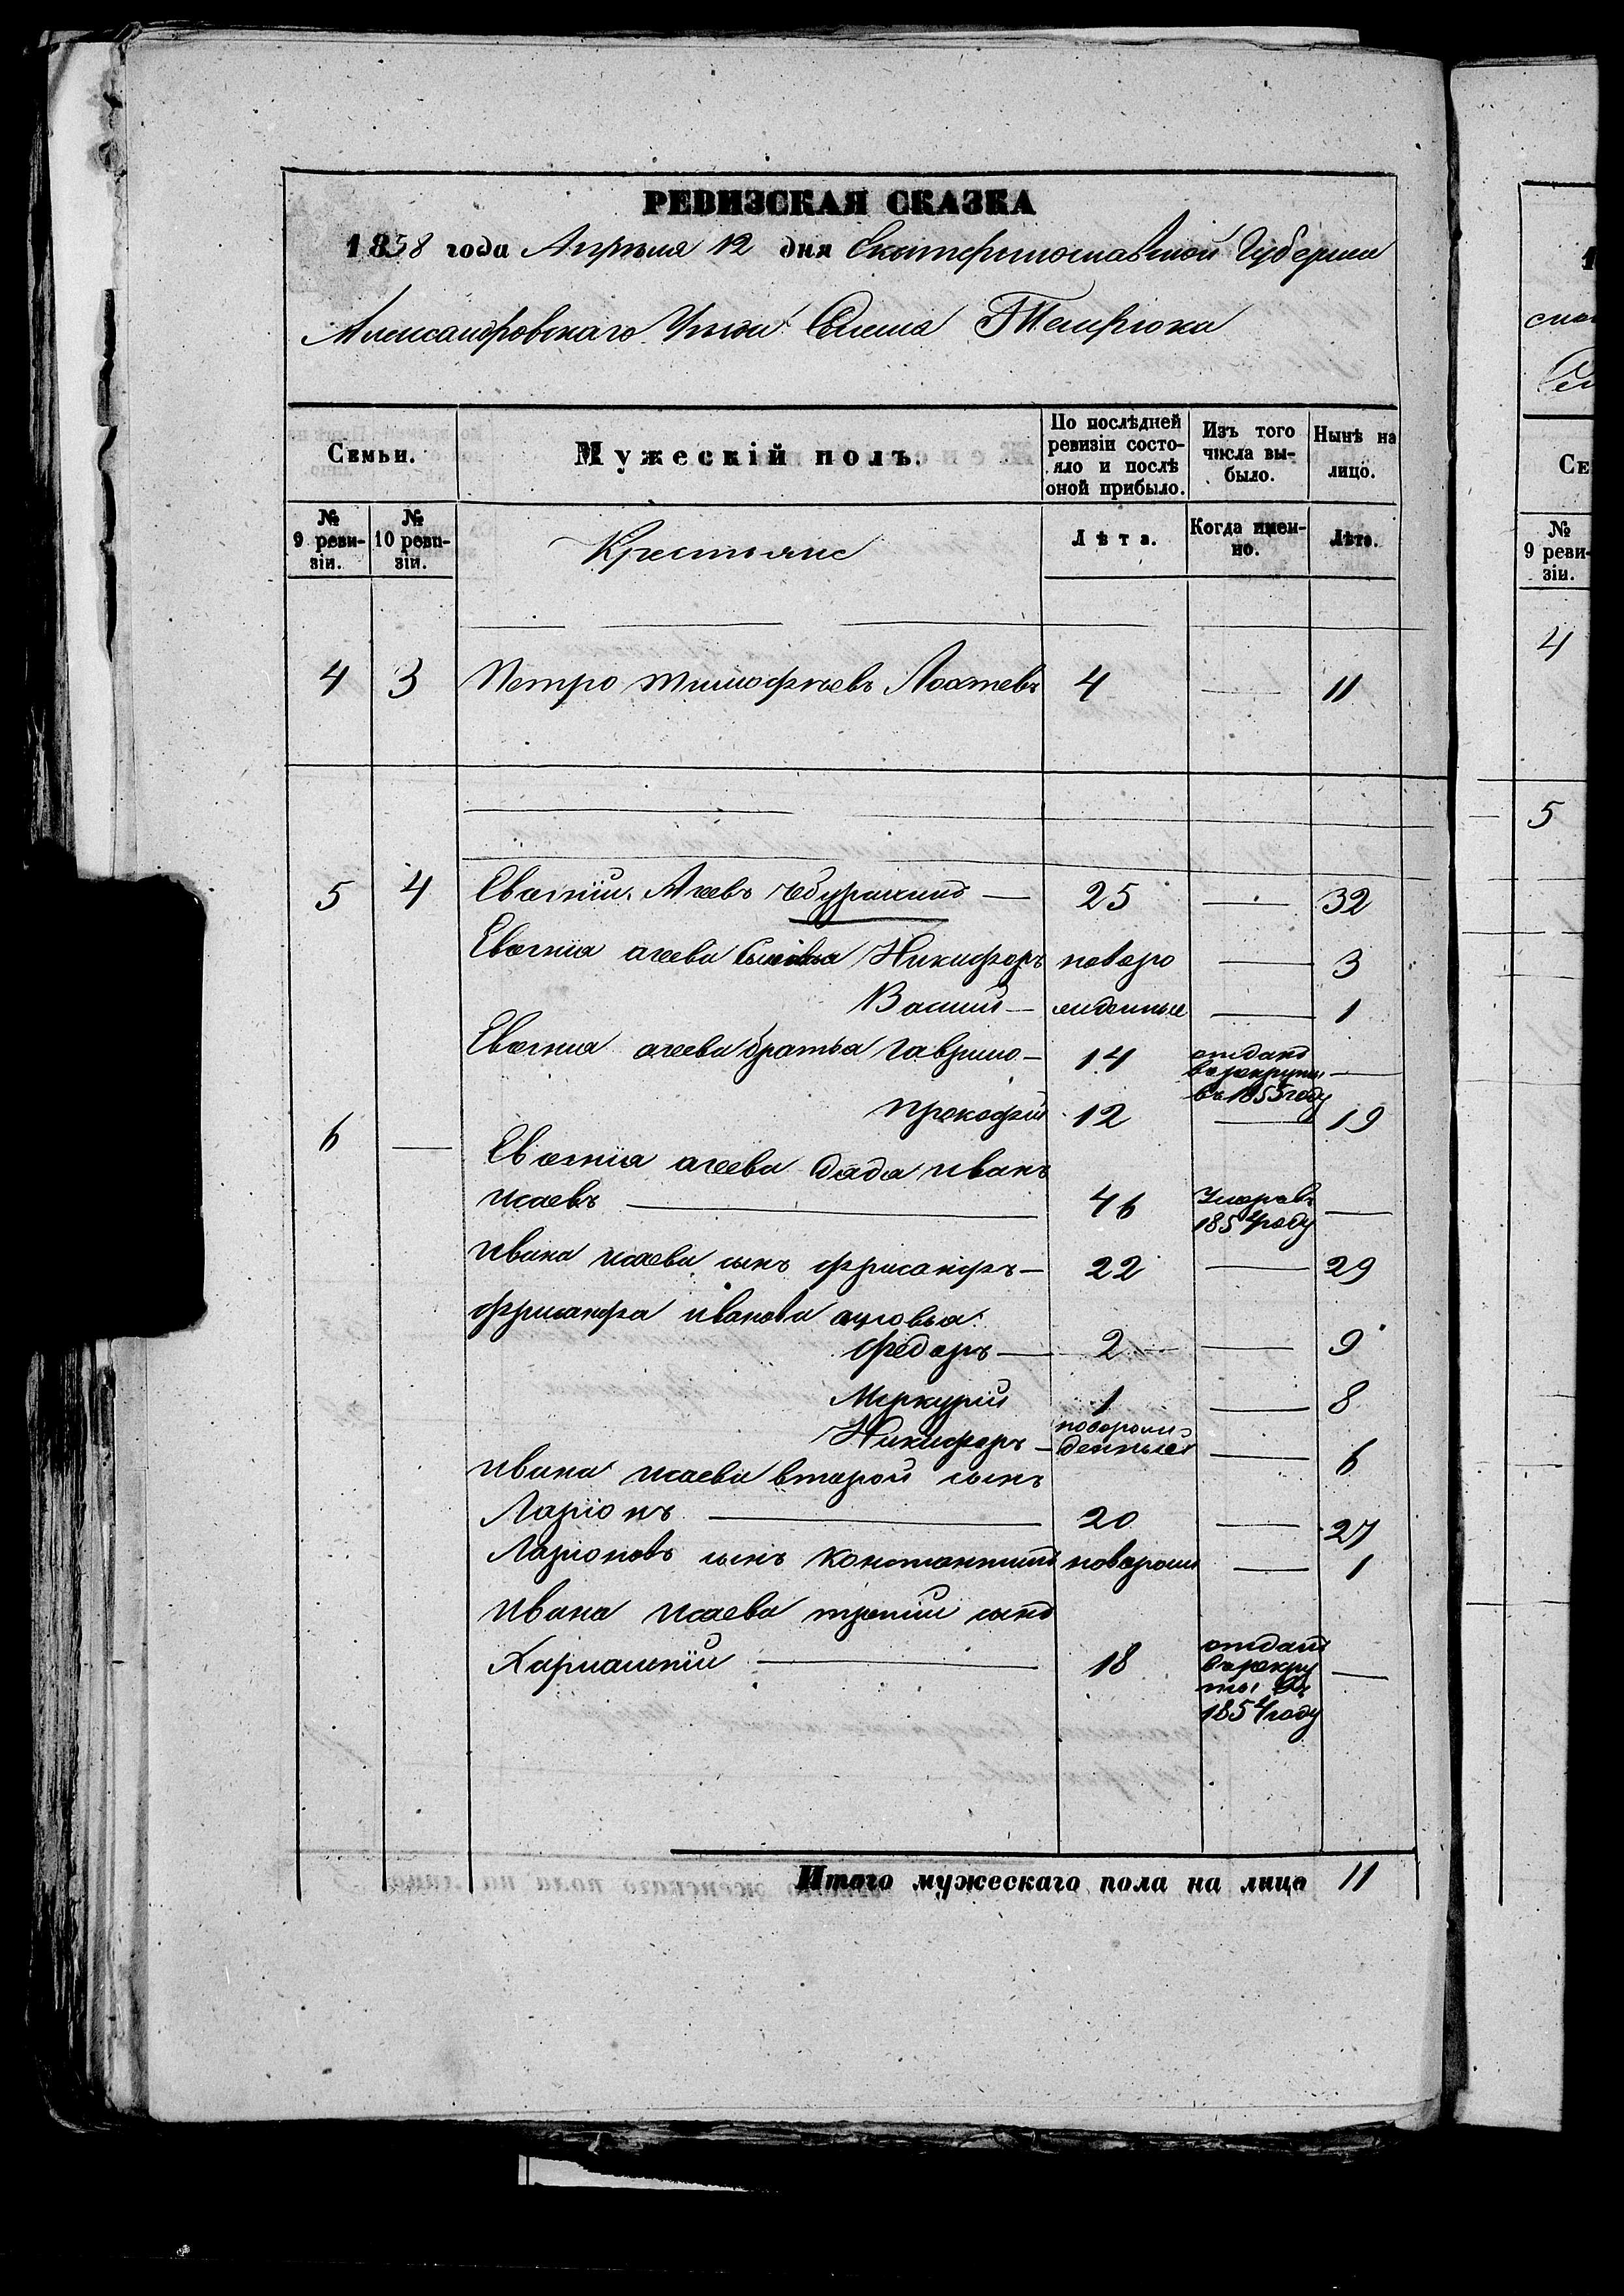 РЕВИЗСКАЯ СКАЗКА
1858 года Апрѣля 12 дня Екатеринославской Губернии
Александровскаго Уѣзда Селенія Темрюка
Семьи.
Мужескій полъ.
По послѣдней ревизіи состояло и послѣ оной прибыло.
Изъ того числа выбыло.
Нынѣ на лицо.
№ 9 ревизіи.
№ 10 ревизіи.
Крестьяне
Лѣта.
Когда именно.
Лѣта.
4 3 Петро тимофѣевъ 4 — 11
5 4 Евсѣгній Агеевъ 25 — 32
агеева Никифоръ новоро — 3
Василій — жденные — 1
агеева братья гаврило — 14 отданъ в рекруты въ 1855 году —
прокофій 12 — 19
6 — агеева дядя иванъ
исаевъ — 46 Умеръ въ 1854 году —
ивана исаева сынъ — 22 — 29
иванова
федоръ — 2 — 9
Меркурий 1 — 8
Никифоръ — новорожденные — 6
ивана исаева второй сынъ
Ларіонъ — 20 — 27
Ларіоновъ сынъ константинъ новорож — 1
ивана исаева третій сынъ
Харлампій — 18 отданъ в рекруты въ 1854 году —
Итого мужескаго пола на лицо 11
1
Се
№ 9 ревизіи.
4
5